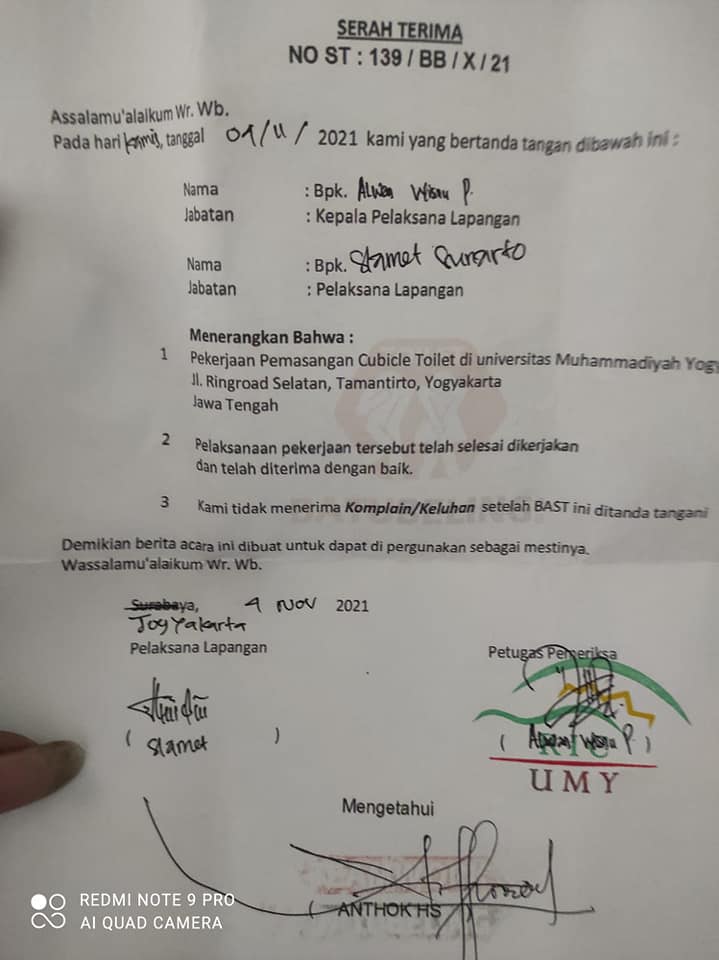 SERAH TERIMA
NO ST : 139 / BB / X / 21
Assalamu'alaikum Wr. Wb.
Pada hari kamis, tanggal 04/11/ 2021 kami yang bertanda tangan dibawah ini :
Nama : Bpk. Alwan Wisnu P.
Jabatan : Kepala Pelaksana Lapangan
Nama : Bpk. Slamet Sunarto
Jabatan : Pelaksana Lapangan
Menerangkan Bahwa :
1 Pekerjaan Pemasangan Cubicle Toilet di universitas Muhammadiyah Yogy
Jl. Ringroad Selatan, Tamantirto, Yogyakarta
Jawa Tengah
2 Pelaksanaan pekerjaan tersebut telah selesai dikerjakan
dan telah diterima dengan baik.
3 Kami tidak menerima Komplain/Keluhan setelah BAST ini ditanda tangani
Demikian berita acara ini dibuat untuk dapat di pergunakan sebagai mestinya.
Wassalamu'alaikum Wr. Wb.
Surabaya, 4 Nov 2021
Jogyakarta
Pelaksana Lapangan Petugas Pemeriksa
( Slamet ) ( Alwan Wisnu P. )
UMY
Mengetahui
( ANTHOK HS
REDMI NOTE 9 PRO
AI QUAD CAMERA